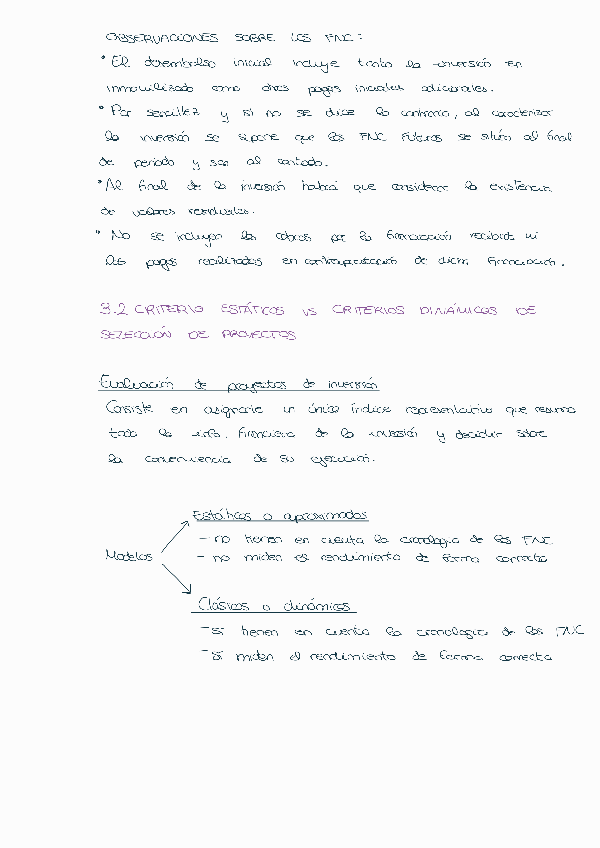 OBSERVACIONES SOBRE LOS FNC:
• El desembolso inicial incluye tanto la inversión en
inmovilizado como otros pagos iniciales adicionales.
• Por sencillez y si no se dice lo contrario, al caracterizar
la inversión se supone que los FNC futuros se sitúan al final
de periodo y son al contado.
• Al final de la inversión habrá que considerar la existencia
de valores residuales.
• No se incluyen los cobros por la financiación recibida ni
los pagos realizados en contraprestación de dicha financiación.
3.2 CRITERIO ESTÁTICOS VS CRITERIOS DINÁMICOS DE
SELECCIÓN DE PROYECTOS
Evaluación de proyectos de inversión
Consiste en asignarle un único índice representativo que resuma
toda la info. financiera de la inversión y decidir sobre
la conveniencia de su ejecución.
Estáticos o aproximados
- no tienen en cuenta la cronología de los FNC
Modelos
- no miden el rendimiento de forma correcta
Clásicos o dinámicos
- si tienen en cuenta la cronología de los FNC
- si miden el rendimiento de forma correcta